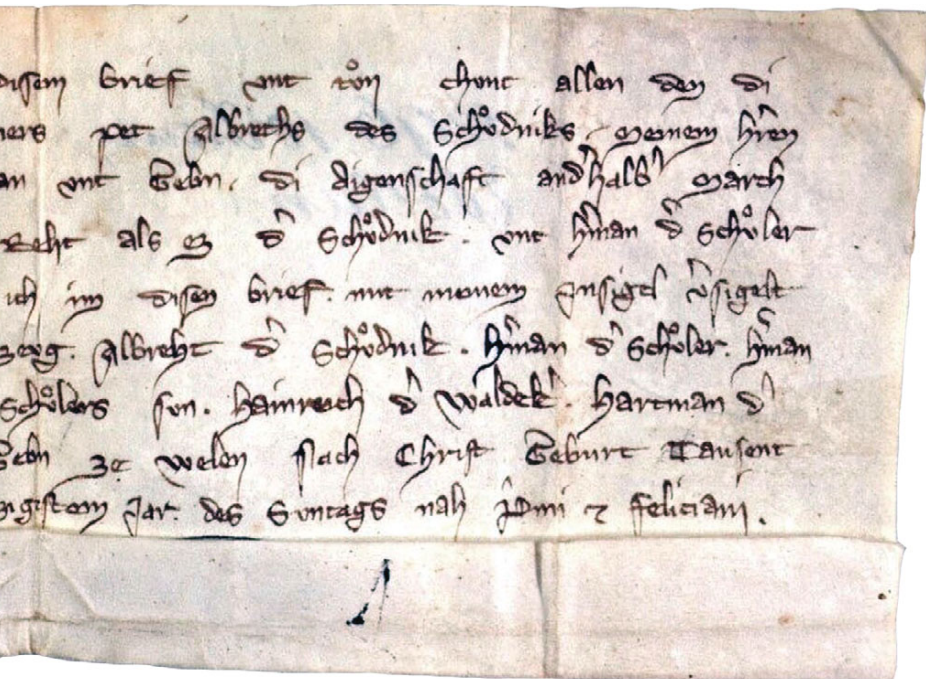 disem brief vnt tön chunt allen den di
ners pet Albrehts des Schödniks. meinem h'ren
an vnt Gebn. di Aigenschaft and'halb' march
Reht als d' Schödnik. vnt h'man d' Schöler
ich im disen brief. mit meinem Insigel v'sigelt
zeog. Albreht d' Schödnik. h'man d' Schöler. h'man
Schölers sun. hainreich d' waldek'. hartman d'
Gebn ze welen Nach Christ Geburt Tausent
zigistem Jar. des Suntags nah P'mi ⁊ feliciani.